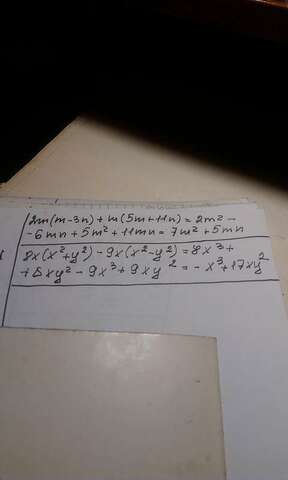 2m(m-3n)+m(5m+11n)=2m²-
-6mn+5m²+11mn=7m²+5mn
8x(x²+y²)-9x(x²-y²)=8x³+
+8xy²-9x³+9xy²=-x³+17xy²